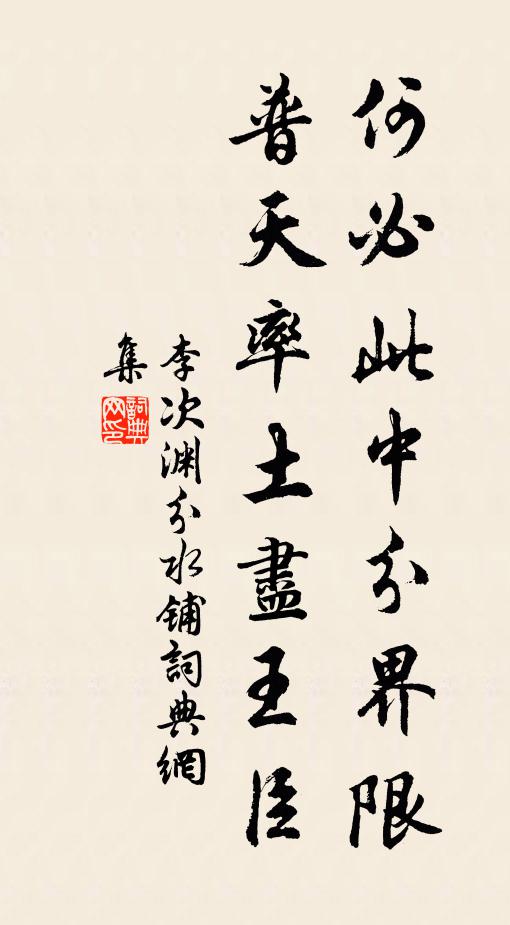 何必此中分界限
普天率土盡王臣
李次渊分水鋪詞典網
集
詞典
网印